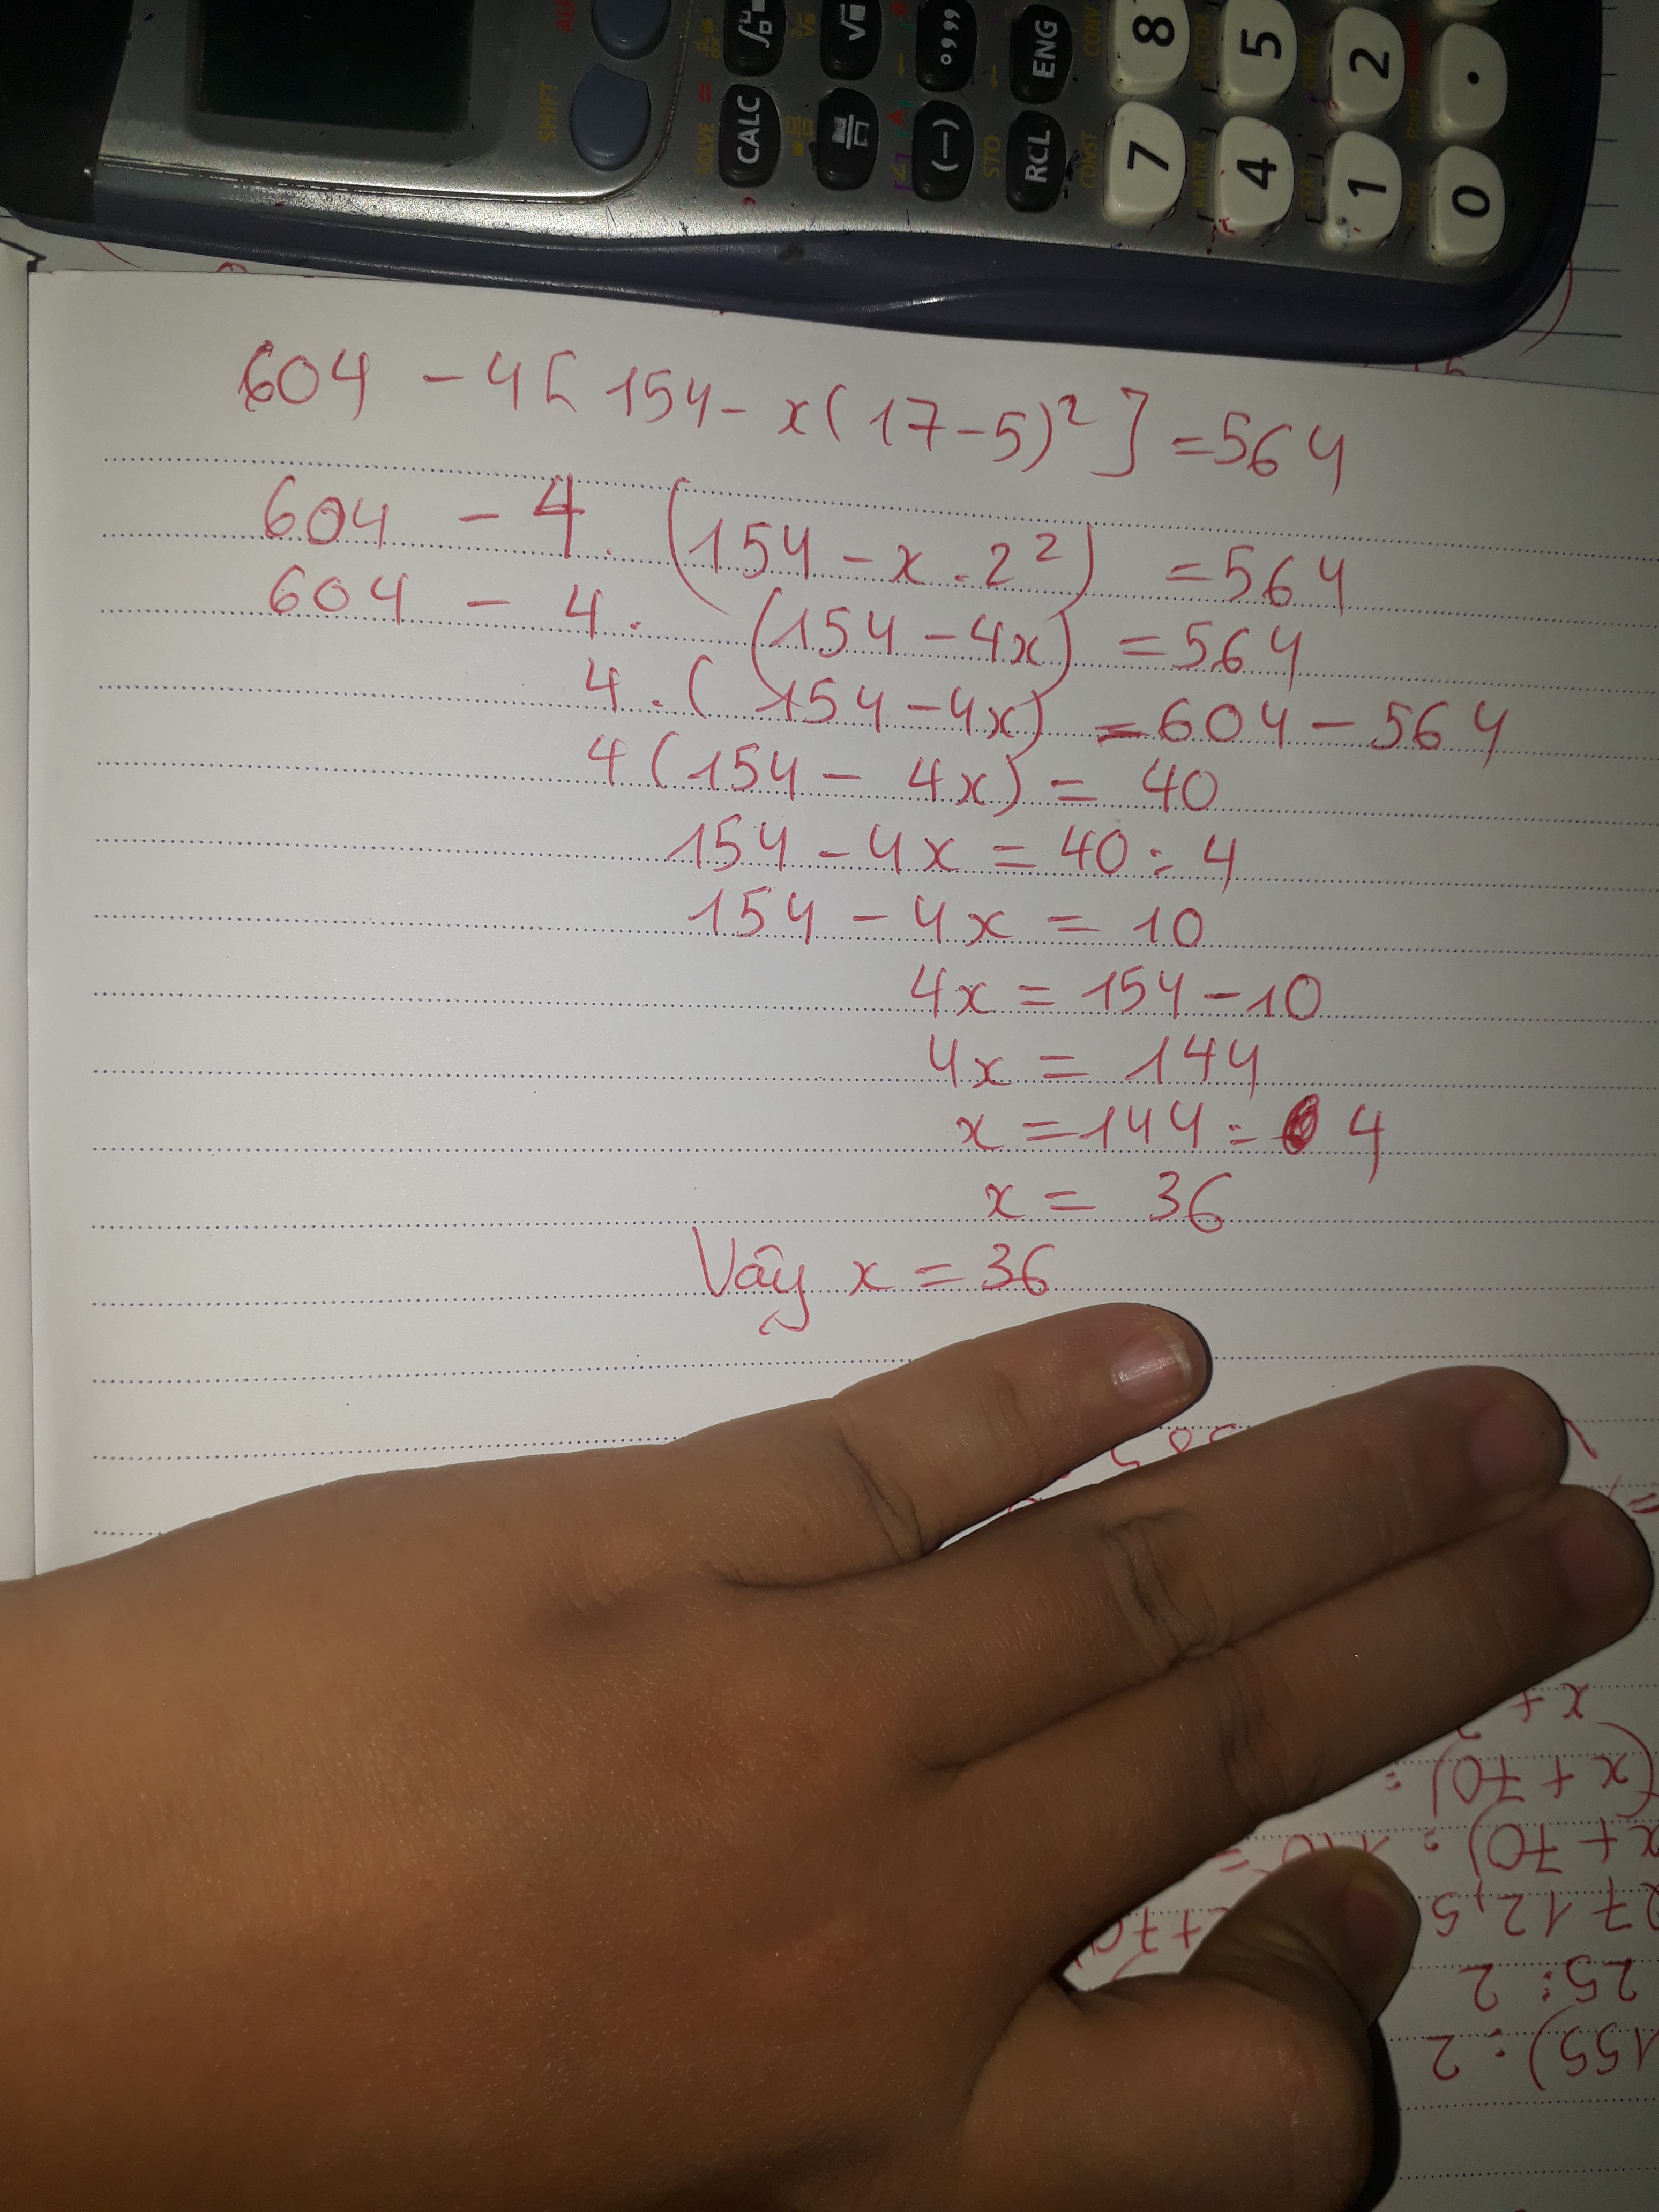 SHIFT
SOLVE =
CALC
(−)
STO
RCL
ENG
CONST
CONV
MATRIX
VECTOR
STAT
CMPLX
Rnd
7 8
4 5
1 2
0 .
604 - 4[ 154 - x(17-5)² ] = 564
604 - 4. (154 - x . 2²) = 564
604 - 4. (154 - 4x) = 564
4.( 154 - 4x) = 604 - 564
4(154 - 4x) = 40
154 - 4x = 40 : 4
154 - 4x = 10
4x = 154 - 10
4x = 144
x = 144 : 4
x = 36
Vậy x = 36
155) : 2
25 : 2
712,5
x + 70) :
(x + 70) :
x +